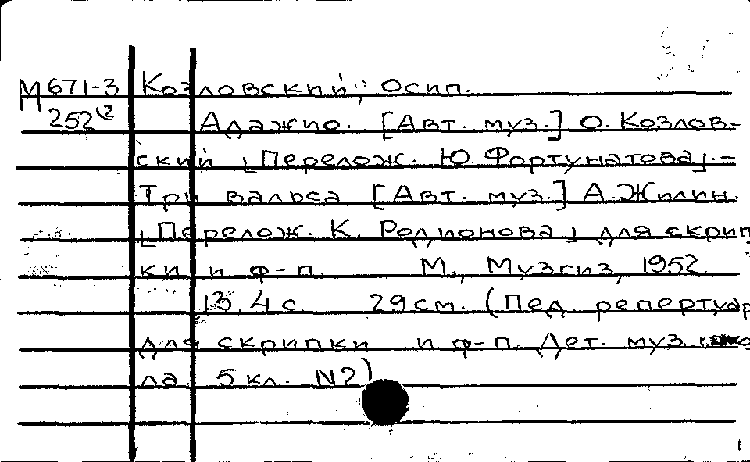 М 671-3 Козловский, Осип.
252 Адажио. [Авт. муз.] О. Козлов-
ский [Перелож. Ю. Фортунатова] =
Три вальса [Авт. муз.] А. Жилин.
[Перелож. К. Родионова] для скрип
ки и ф-п. М., Музгиз, 1952.
13, 4 с. 29 см. (Пед. репертуар
для скрипки и ф-п. Дет. муз. шко
ла 5 кл. N2)